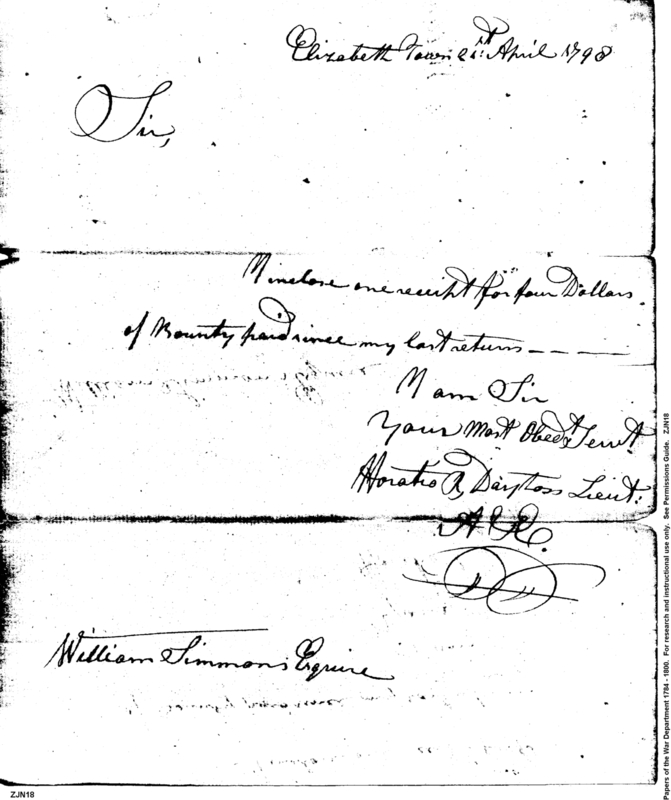 Elizabeth Town 21st April 1798
Sir,
I inclose one receipt for four Dollars
of Bounty paid since my last return
I am Sir
Your Most Obedt Servt
Horatio R Dayton Lieut:
William Simmons Esquire
ZJN18
Papers of the War Department 1784 - 1800. For research and instructional use only. See Permissions Guide. ZJN18